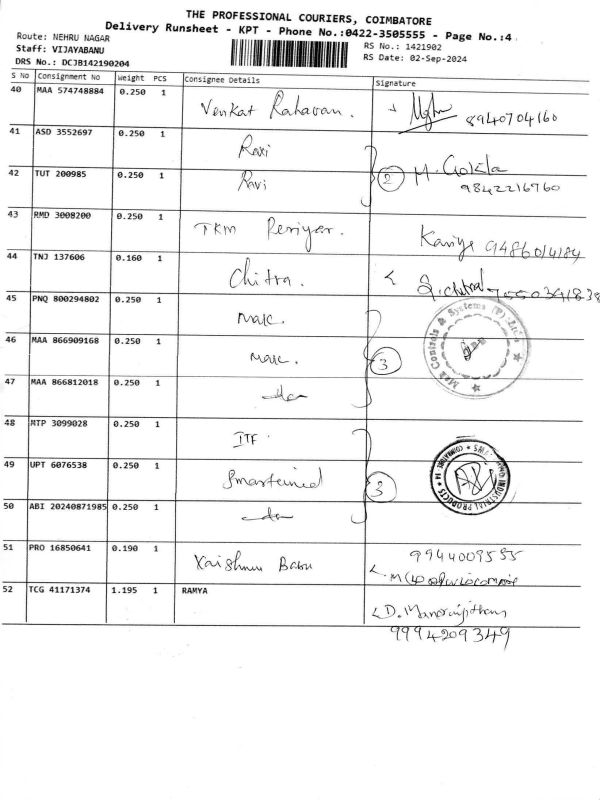 THE PROFESSIONAL COURIERS, COIMBATORE
Delivery Runsheet - KPT - Phone No.:0422-3505555 - Page No.:4
Route: NEHRU NAGAR
RS No.: 1421902
Staff: VIJAYABANU
RS Date: 02-Sep-2024
DRS No.: DCJB142190204
S No Consignment No Weight PCS Consignee Details Signature
40 MAA 574748884 0.250 1 Venkat Raharan. 8940704160
41 ASD 3552697 0.250 1 Ravi
42 TUT 200985 0.250 1 Ravi 2 M. Gokla 9842216760
43 RMD 3008200 0.250 1 TKM Periyar. 9486014184
44 TNJ 137606 0.160 1 Chitra. S. chitra 7550341838
45 PNQ 800294802 0.250 1 Mak.
46 MAA 866909168 0.250 1 Mak. 3 Mak Controls & Systems (P) Ltd
47 MAA 866812018 0.250 1
48 MTP 3099028 0.250 1 ITF.
49 UPT 6076538 0.250 1 3 INDUSTRIAL PRODUCTS
50 ABI 20240871985 0.250 1
51 PRO 16850641 0.190 1 Vaishnu Banu 9944009555
52 TCG 41171374 1.195 1 RAMYA D. Manoranjitham
9994209349